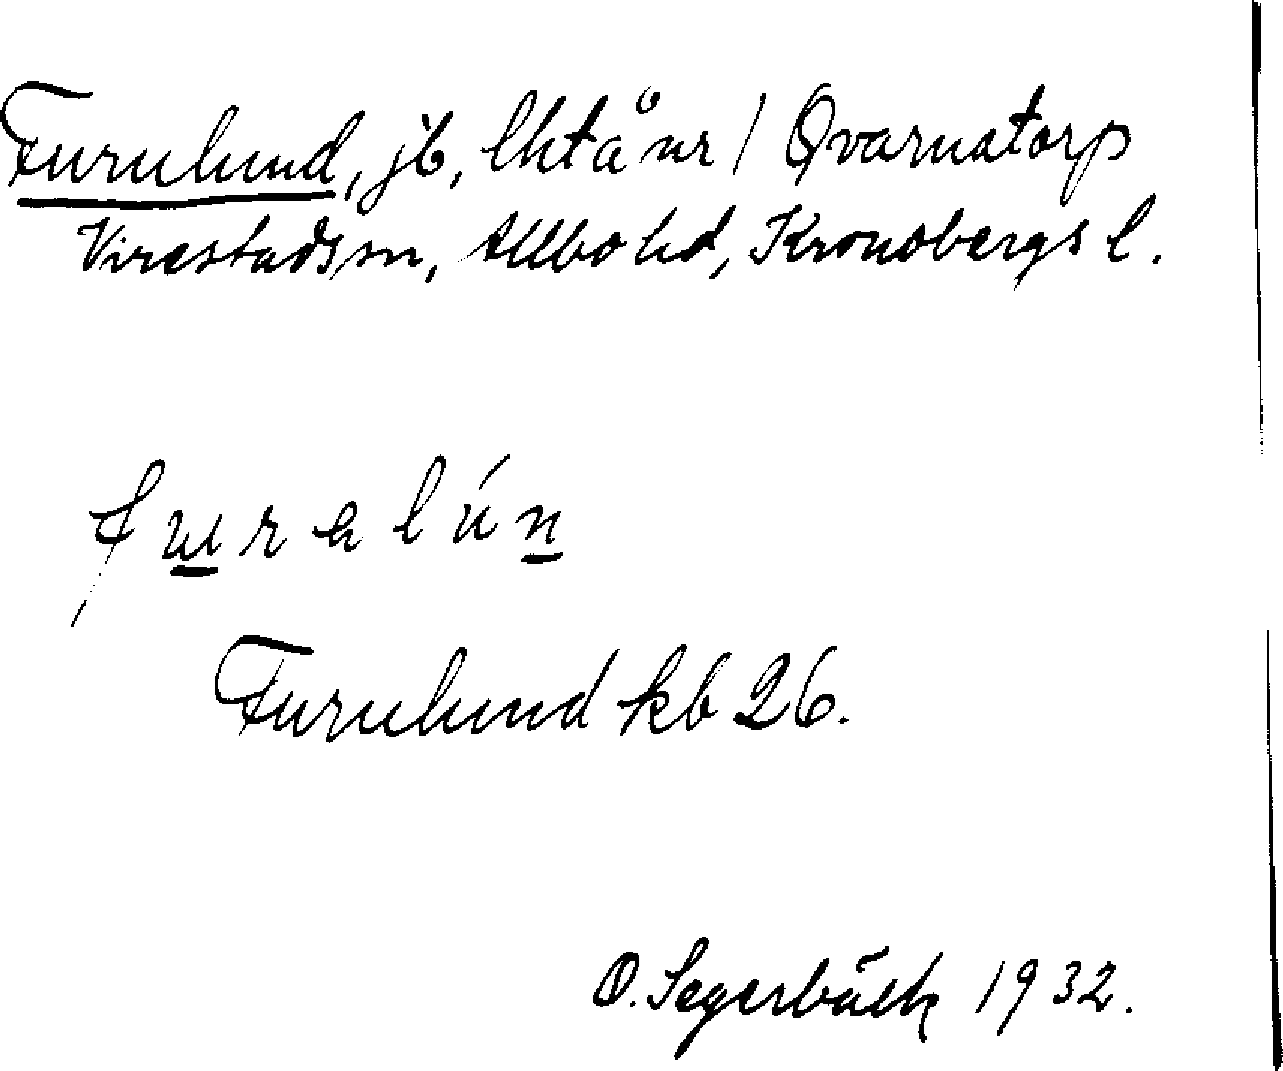 Furulund, jb, lht å nr 1 Qvarnatorp
Virestads sn, Allbo hd, Kronobergs l.
fu̲ralún̲
Furulund kb 26.
O. Segerbäck 1932.